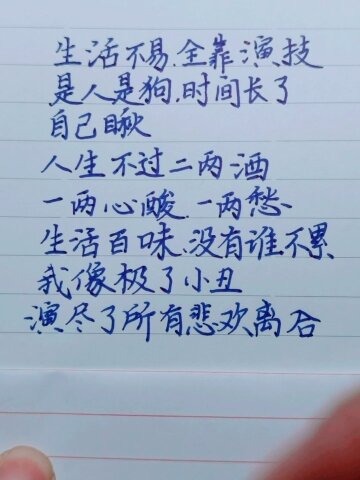 生活不易.全靠演技
是人是狗.时间长了
自己瞅
人生不过二两酒
一两心酸.一两愁.
生活百味.没有谁不累
我像极了小丑
演尽了所有悲欢离合